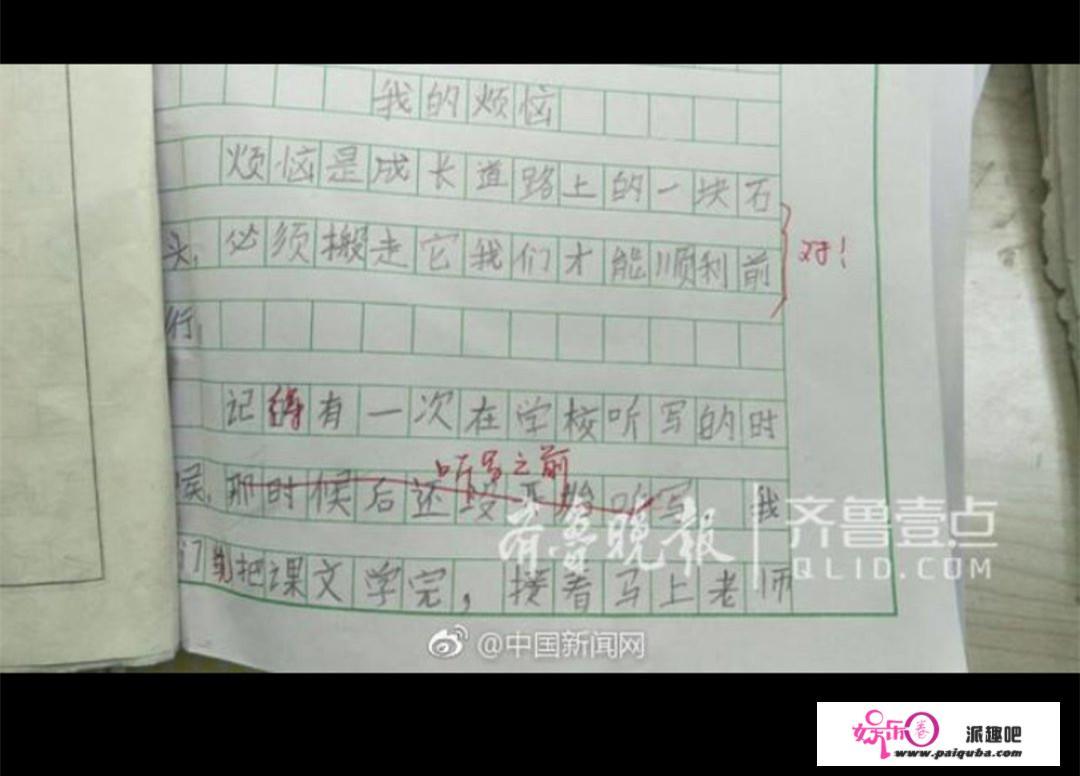 我的烦恼
烦恼是成长道路上的一块石
头,必须搬走它我们才能顺利前
对!
行。
记得有一次在学校听写的时
听写之前
候,那时候后还没开始听写 我
们先把课文学完,接着马上老师
齐鲁晚报 齐鲁壹点
QLID.COM
@中国新闻网
娱乐圈 派趣吧
www.paiquba.com